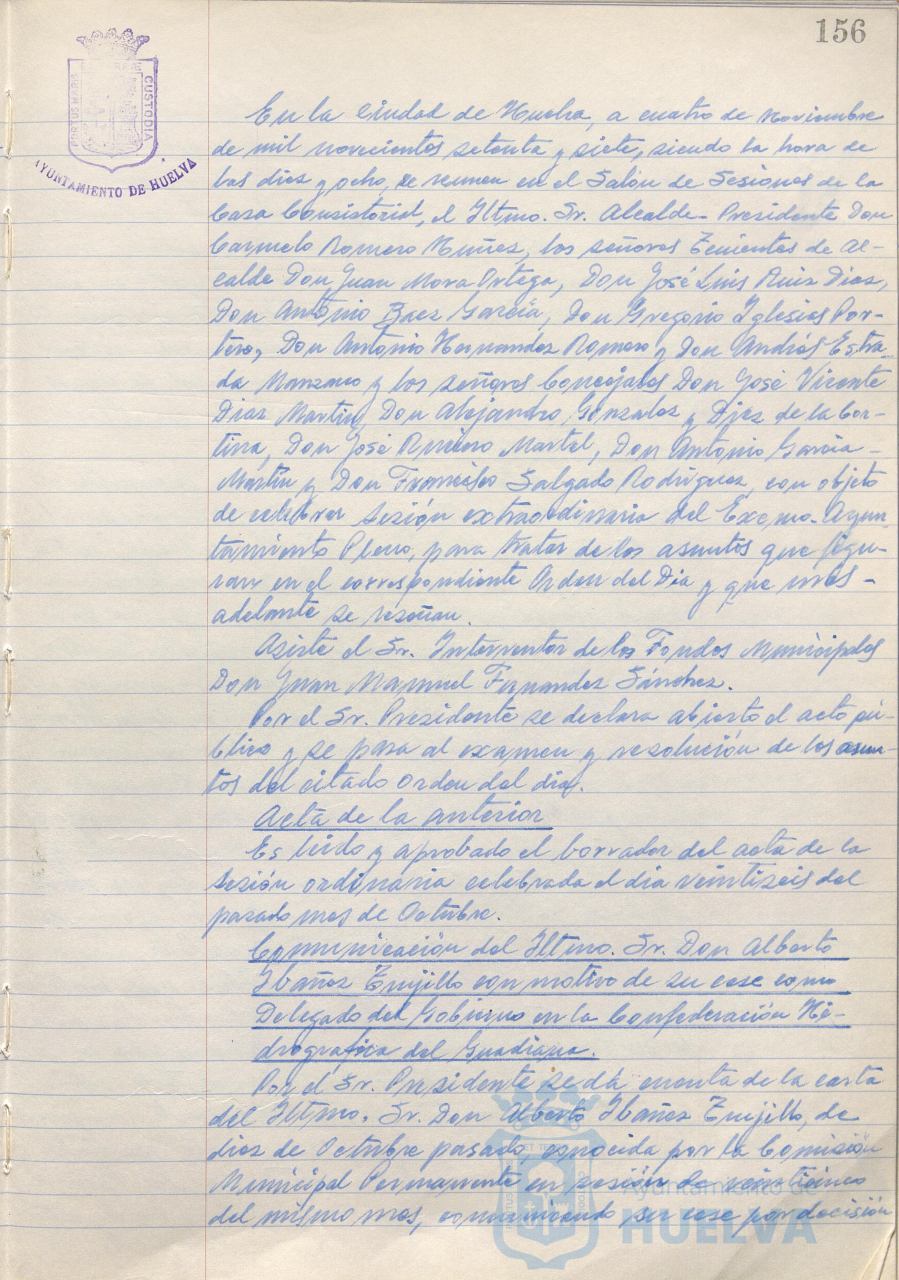 156
PORTUS MARIS
CUSTODIA
AYUNTAMIENTO DE HUELVA
En la Ciudad de Huelva, a cuatro de Noviembre
de mil novecientos setenta y siete, siendo la hora de
las diez y ocho, se reunen en el Salón de Sesiones de la
Casa Consistorial, el Iltmo. Sr. Alcalde-Presidente Don
Carmelo Romero Muñez, los señores Tenientes de Al-
calde Don Juan Mora Ortega, Don José Luis Ruiz Diaz,
Don Antonio Baez García, Don Gregorio Iglesias Por-
tero, Don Antonio Hernandez Romero y Don Andrés Estra-
da Manzano y los señores Concejales Don José Vicente
Diaz Martin, Don Alejandro Gonzalez y Diez de la Cor-
tina, Don José Romero Martel, Don Antonio García-
Martín y Don Francisco Salgado Rodríguez, con objeto
de celebrar sesión extraordinaria del Excmo. Ayun-
tamiento Pleno, para tratar de los asuntos que figu-
ran en el correspondiente Orden del Dia y que más-
adelante se reseñan.
Asiste el Sr. Interventor de los Fondos Municipales
Don Juan Manuel Fernandez Sánchez.
Por el Sr. Presidente se declara abierto el acto pú-
blico y se pasa al examen y resolución de los asun-
tos del citado orden del día.
Acta de la anterior
Es leido y aprobado el borrador del acta de la
sesión ordinaria celebrada el dia veintiseis del
pasado mes de Octubre.
Comunicación del Iltmo. Sr. Don Alberto
Ibañez Trujillo con motivo de su cese como
Delegado del Gobierno en la Confederación Hi-
drografica del Guadiana.
Por el Sr. Presidente se dá cuenta de la carta
del Iltmo. Sr. Don Alberto Ibañez Trujillo, de
diez de Octubre pasado, conocida por la Comisión
Municipal Permanente en sesión de veinticinco
del mismo mes, comunicando su cese por decisión
Ayuntamiento de
HUELVA